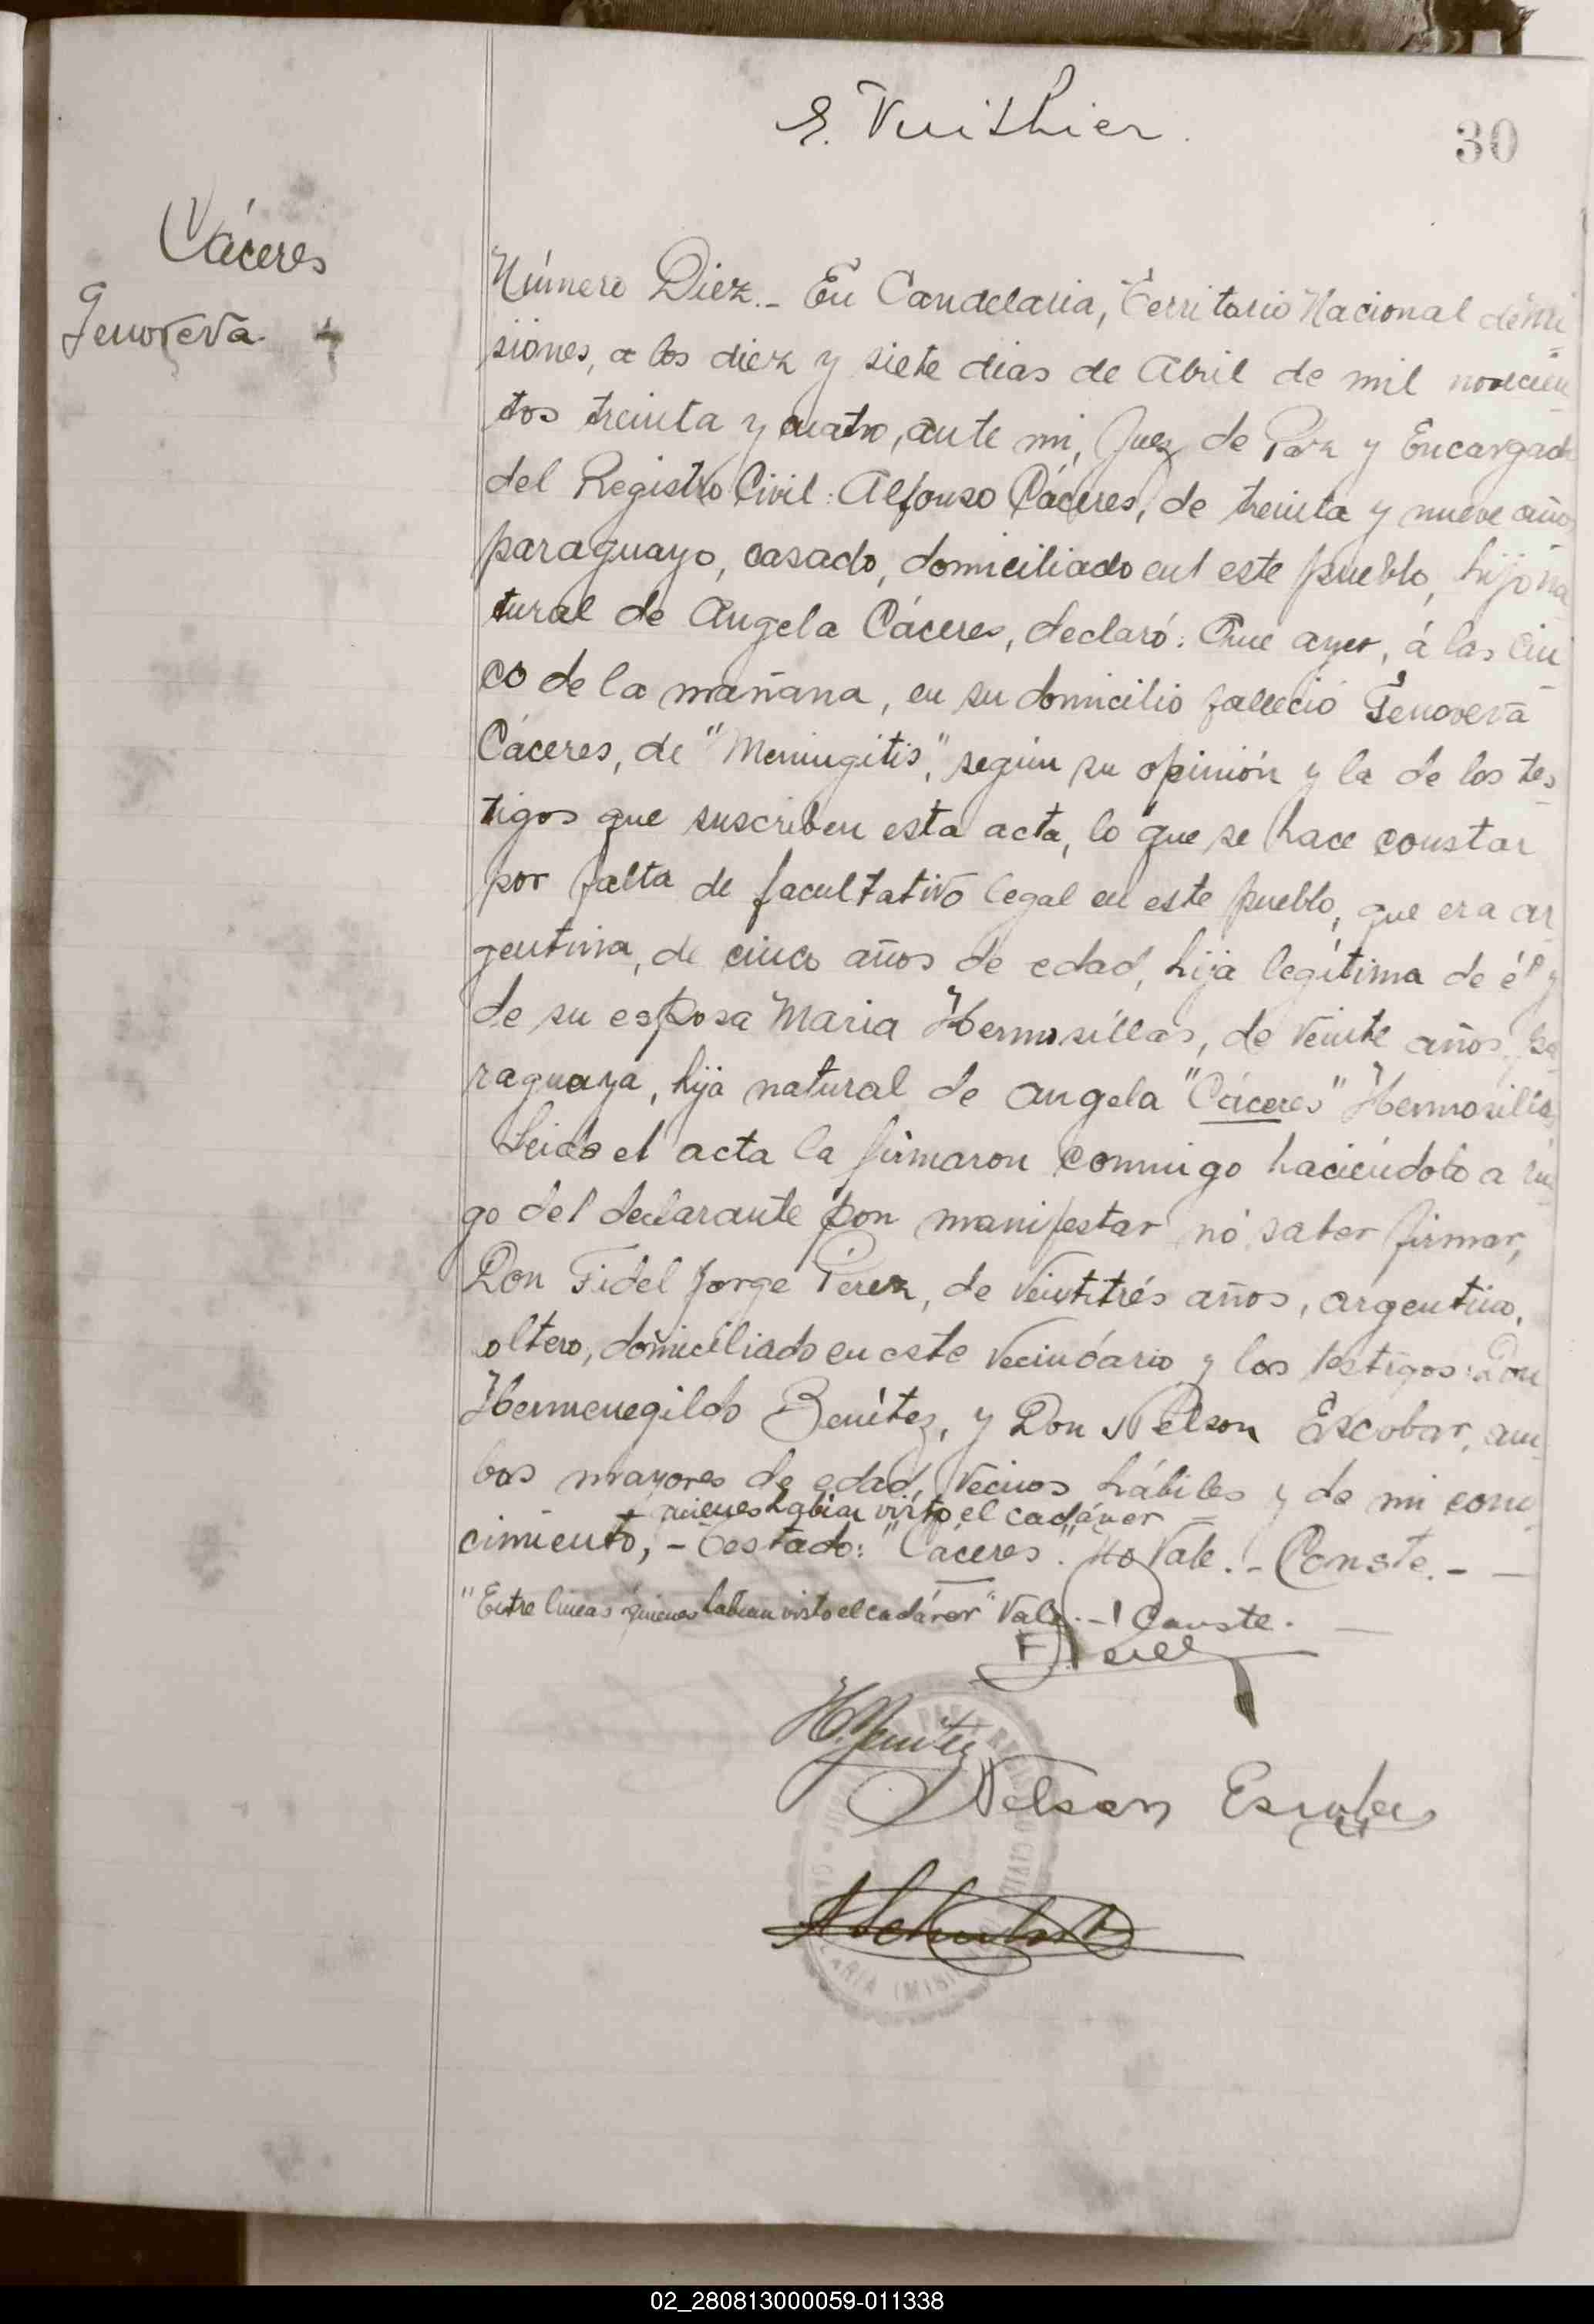 E. Vuithier.
30
Cáceres
Genoveva.
Número Diez.- En Candelaria, Territorio Nacional de Mi
siones, a los diez y siete dias de Abril de mil novecien
tos treinta y cuatro, ante mi, Juez de Paz y Encargado
del Registro Civil: Alfonso Cáceres, de treinta y nueve años
paraguayo, casado, domiciliado en este pueblo, hijo na
tural de Angela Cáceres, declaró: Que ayer, á las cin
co de la mañana, en su domicilio falleció Genoveva
Cáceres, de "Meningitis", según su opinión y la de los tes
tigos que suscriben esta acta, lo que se hace constar
por falta de facultativo legal en este pueblo, que era ar
gentina, de cinco años de edad, hija legítima de él y
de su esposa Maria Hermosillas, de veinte años, pa
raguaya, hija natural de Angela "Cáceres" Hermosillas
Leido el acta la firmaron conmigo haciéndolo a rue
go del declarante por manifestar nó saber firmar,
Don Fidel Jorge Pérez, de veintitrés años, argentino,
oltero, domiciliado en este vecindario y los testigos: Don
Hermenegildo Benítez, y Don Nelson Escobar, am
bos mayores de edad, vecinos hábiles y de mi cono
quienes habian visto el cadáver
cimiento, - Testado: "Cáceres". No Vale. - Conste. -
"Entre lineas quienes habian visto el cadáver" Vale. - Conste.
F. J. Perez
H. Benitez
Nelson Escobar
REGISTRO CIVIL